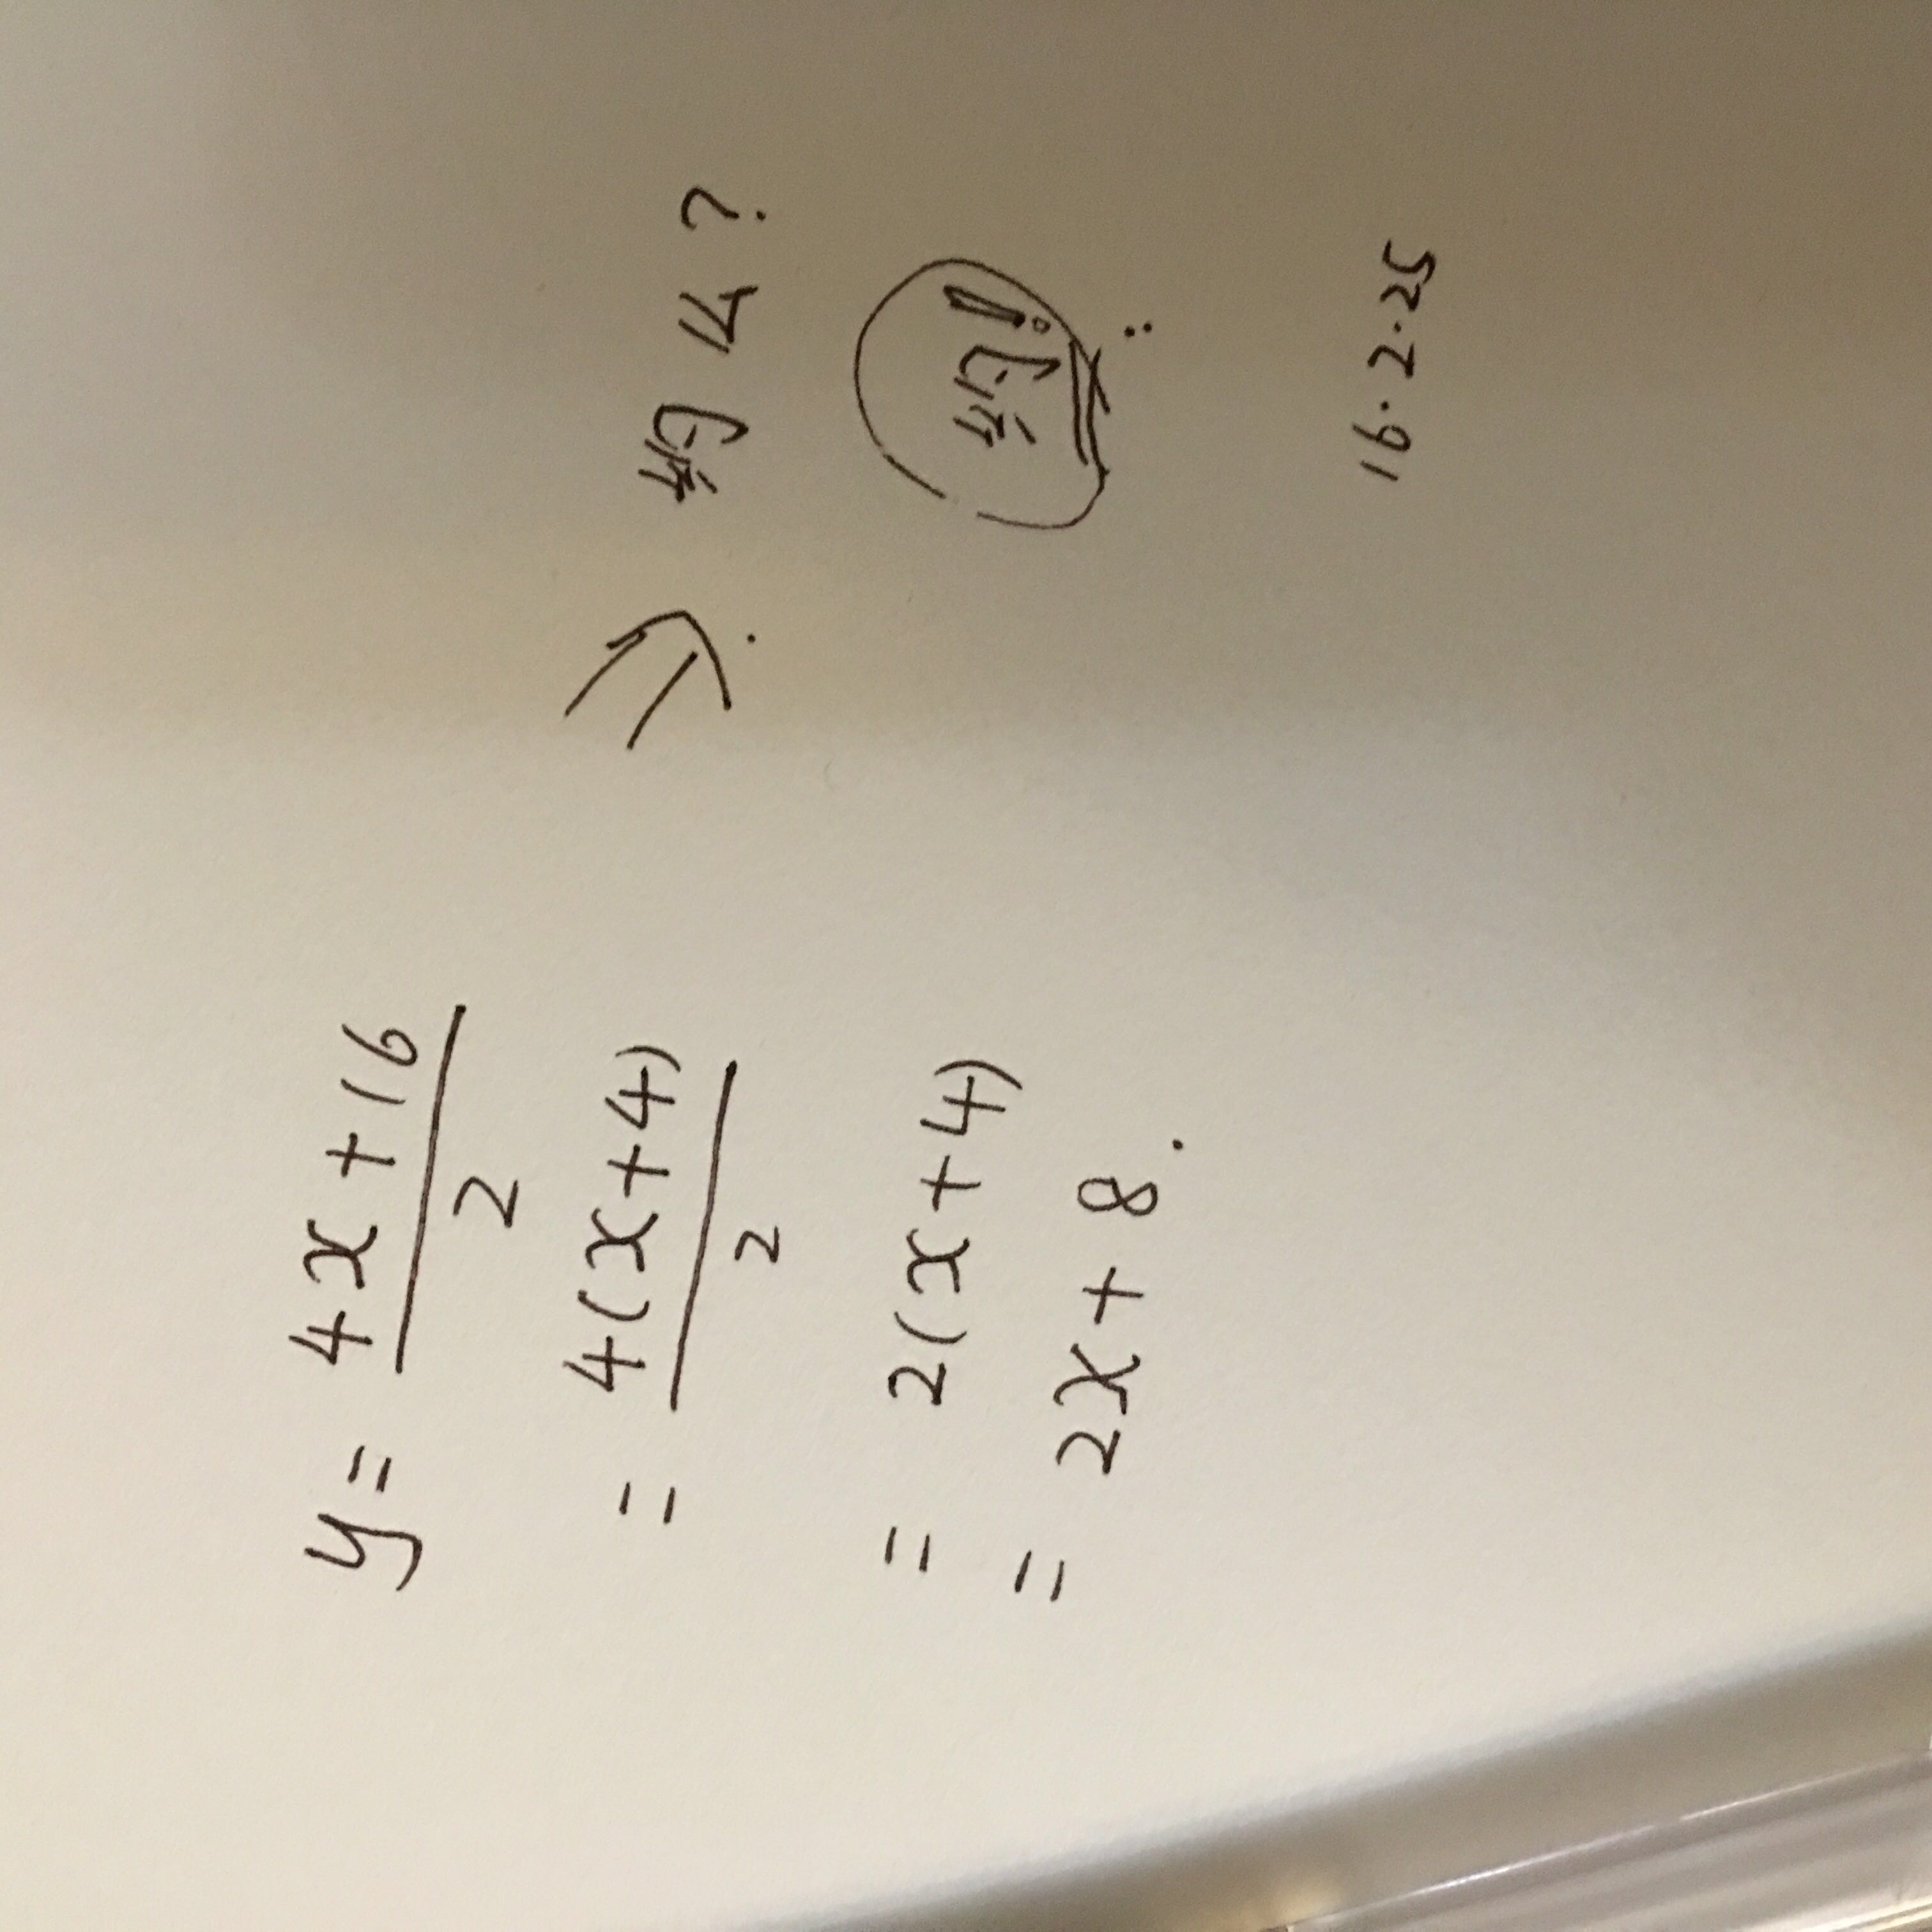 y = (4x + 16) / 2
= 4(x + 4) / 2
= 2(x + 4)
= 2x + 8.
约么?
约!
16.2.25